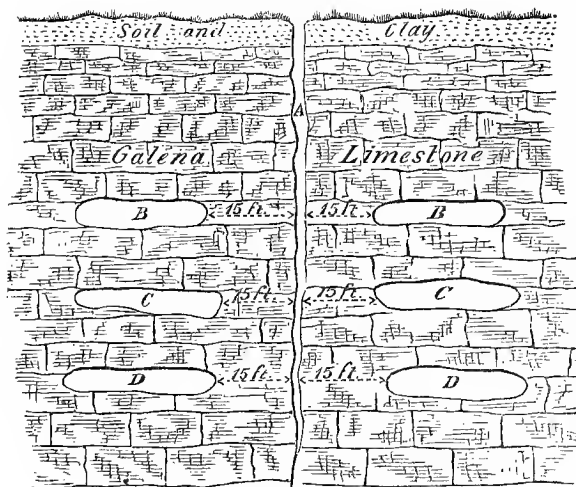 Soil and Clay
A
Galena Limestone
B 15 ft 15 ft B
C 15 ft 15 ft C
D 15 ft 15 ft D